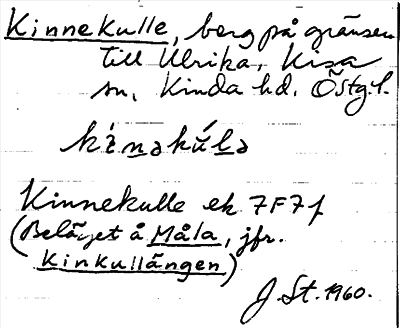 Kinnekulle, berg på gränsen
till Ulrika, Kisa
sn, Kinda hd, Östg.l.
kìnəkúlə
Kinnekulle ek 7F7f
(Beläget å Måla, jfr.
Kinkullängen)
J. St. 1960.